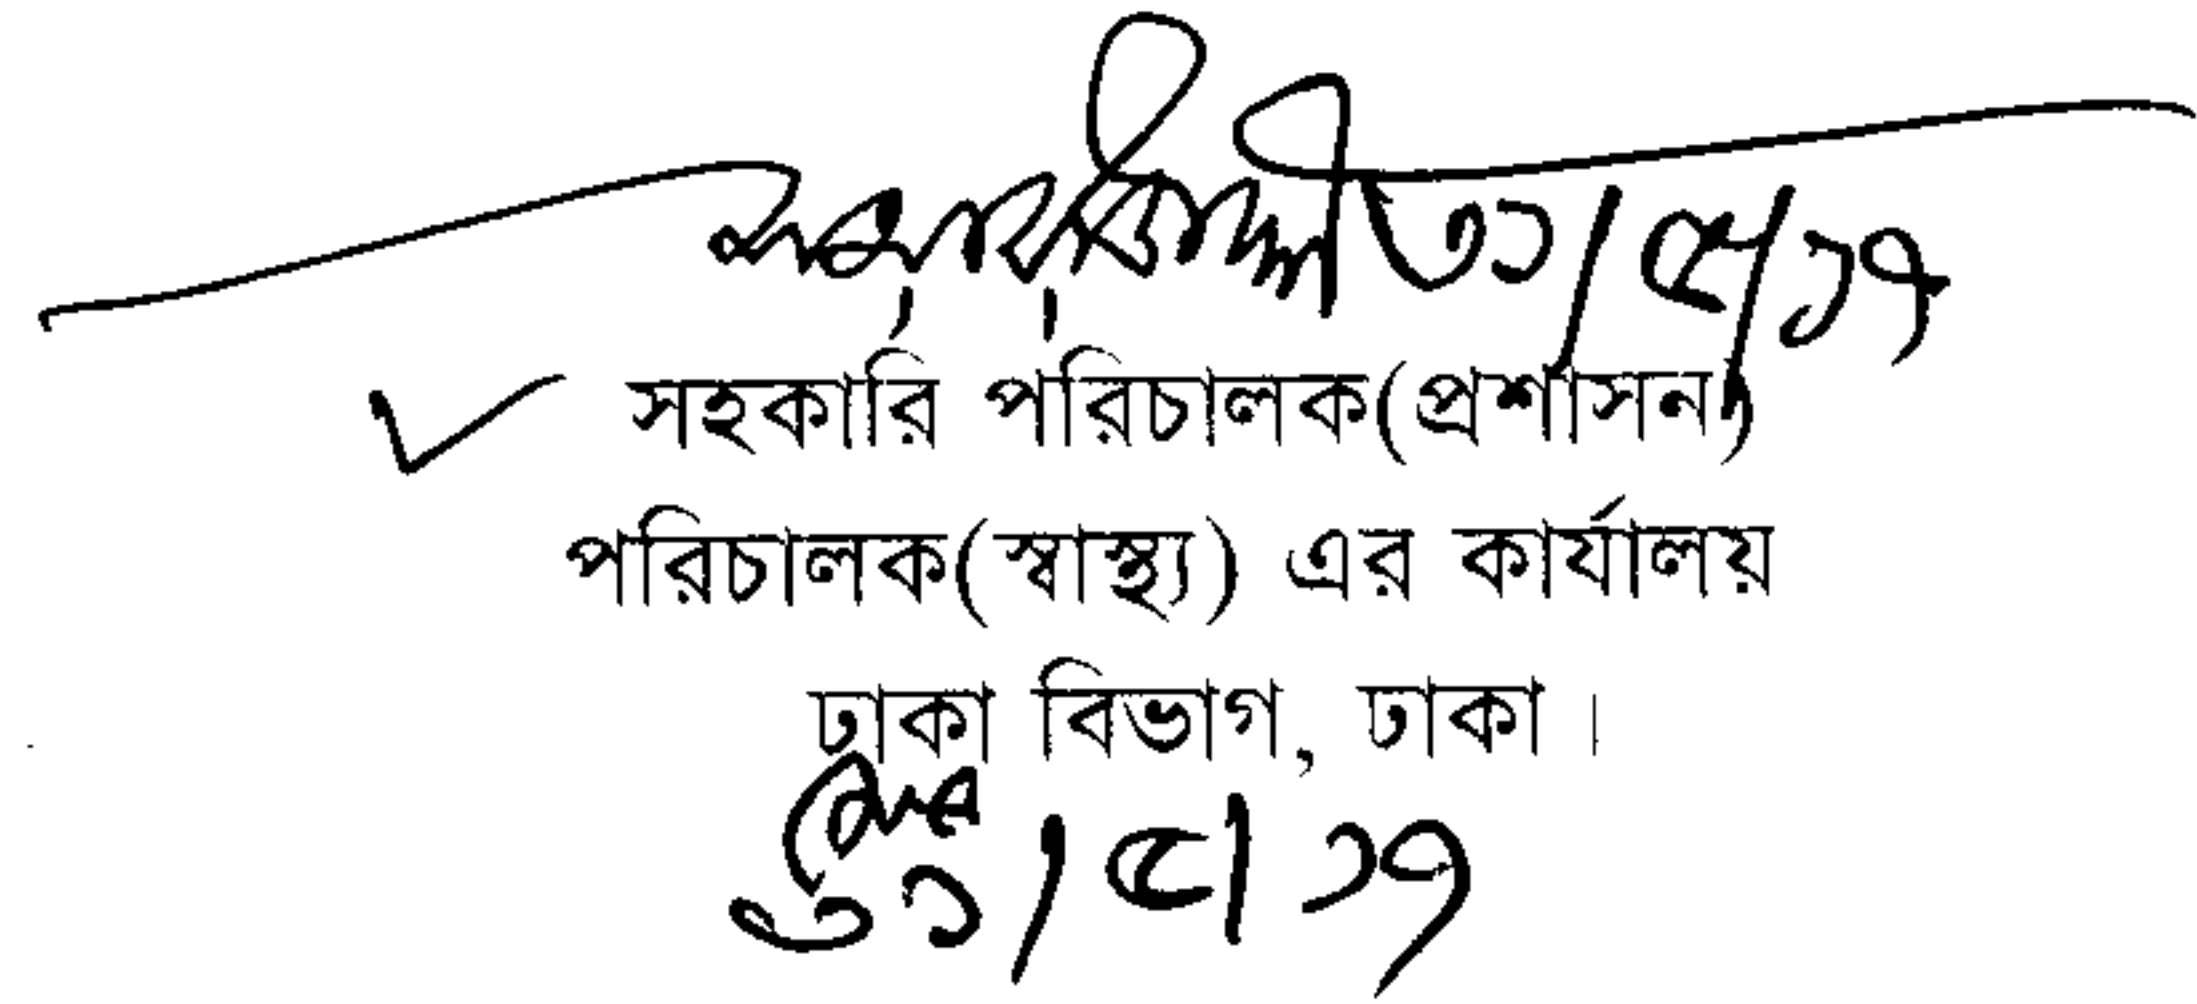 ৩১/৫/১৭
সহকারি পরিচালক(প্রশাসন)
পরিচালক(স্বাস্থ্য) এর কার্যালয়
ঢাকা বিভাগ, ঢাকা।
৩১/৫/১৭